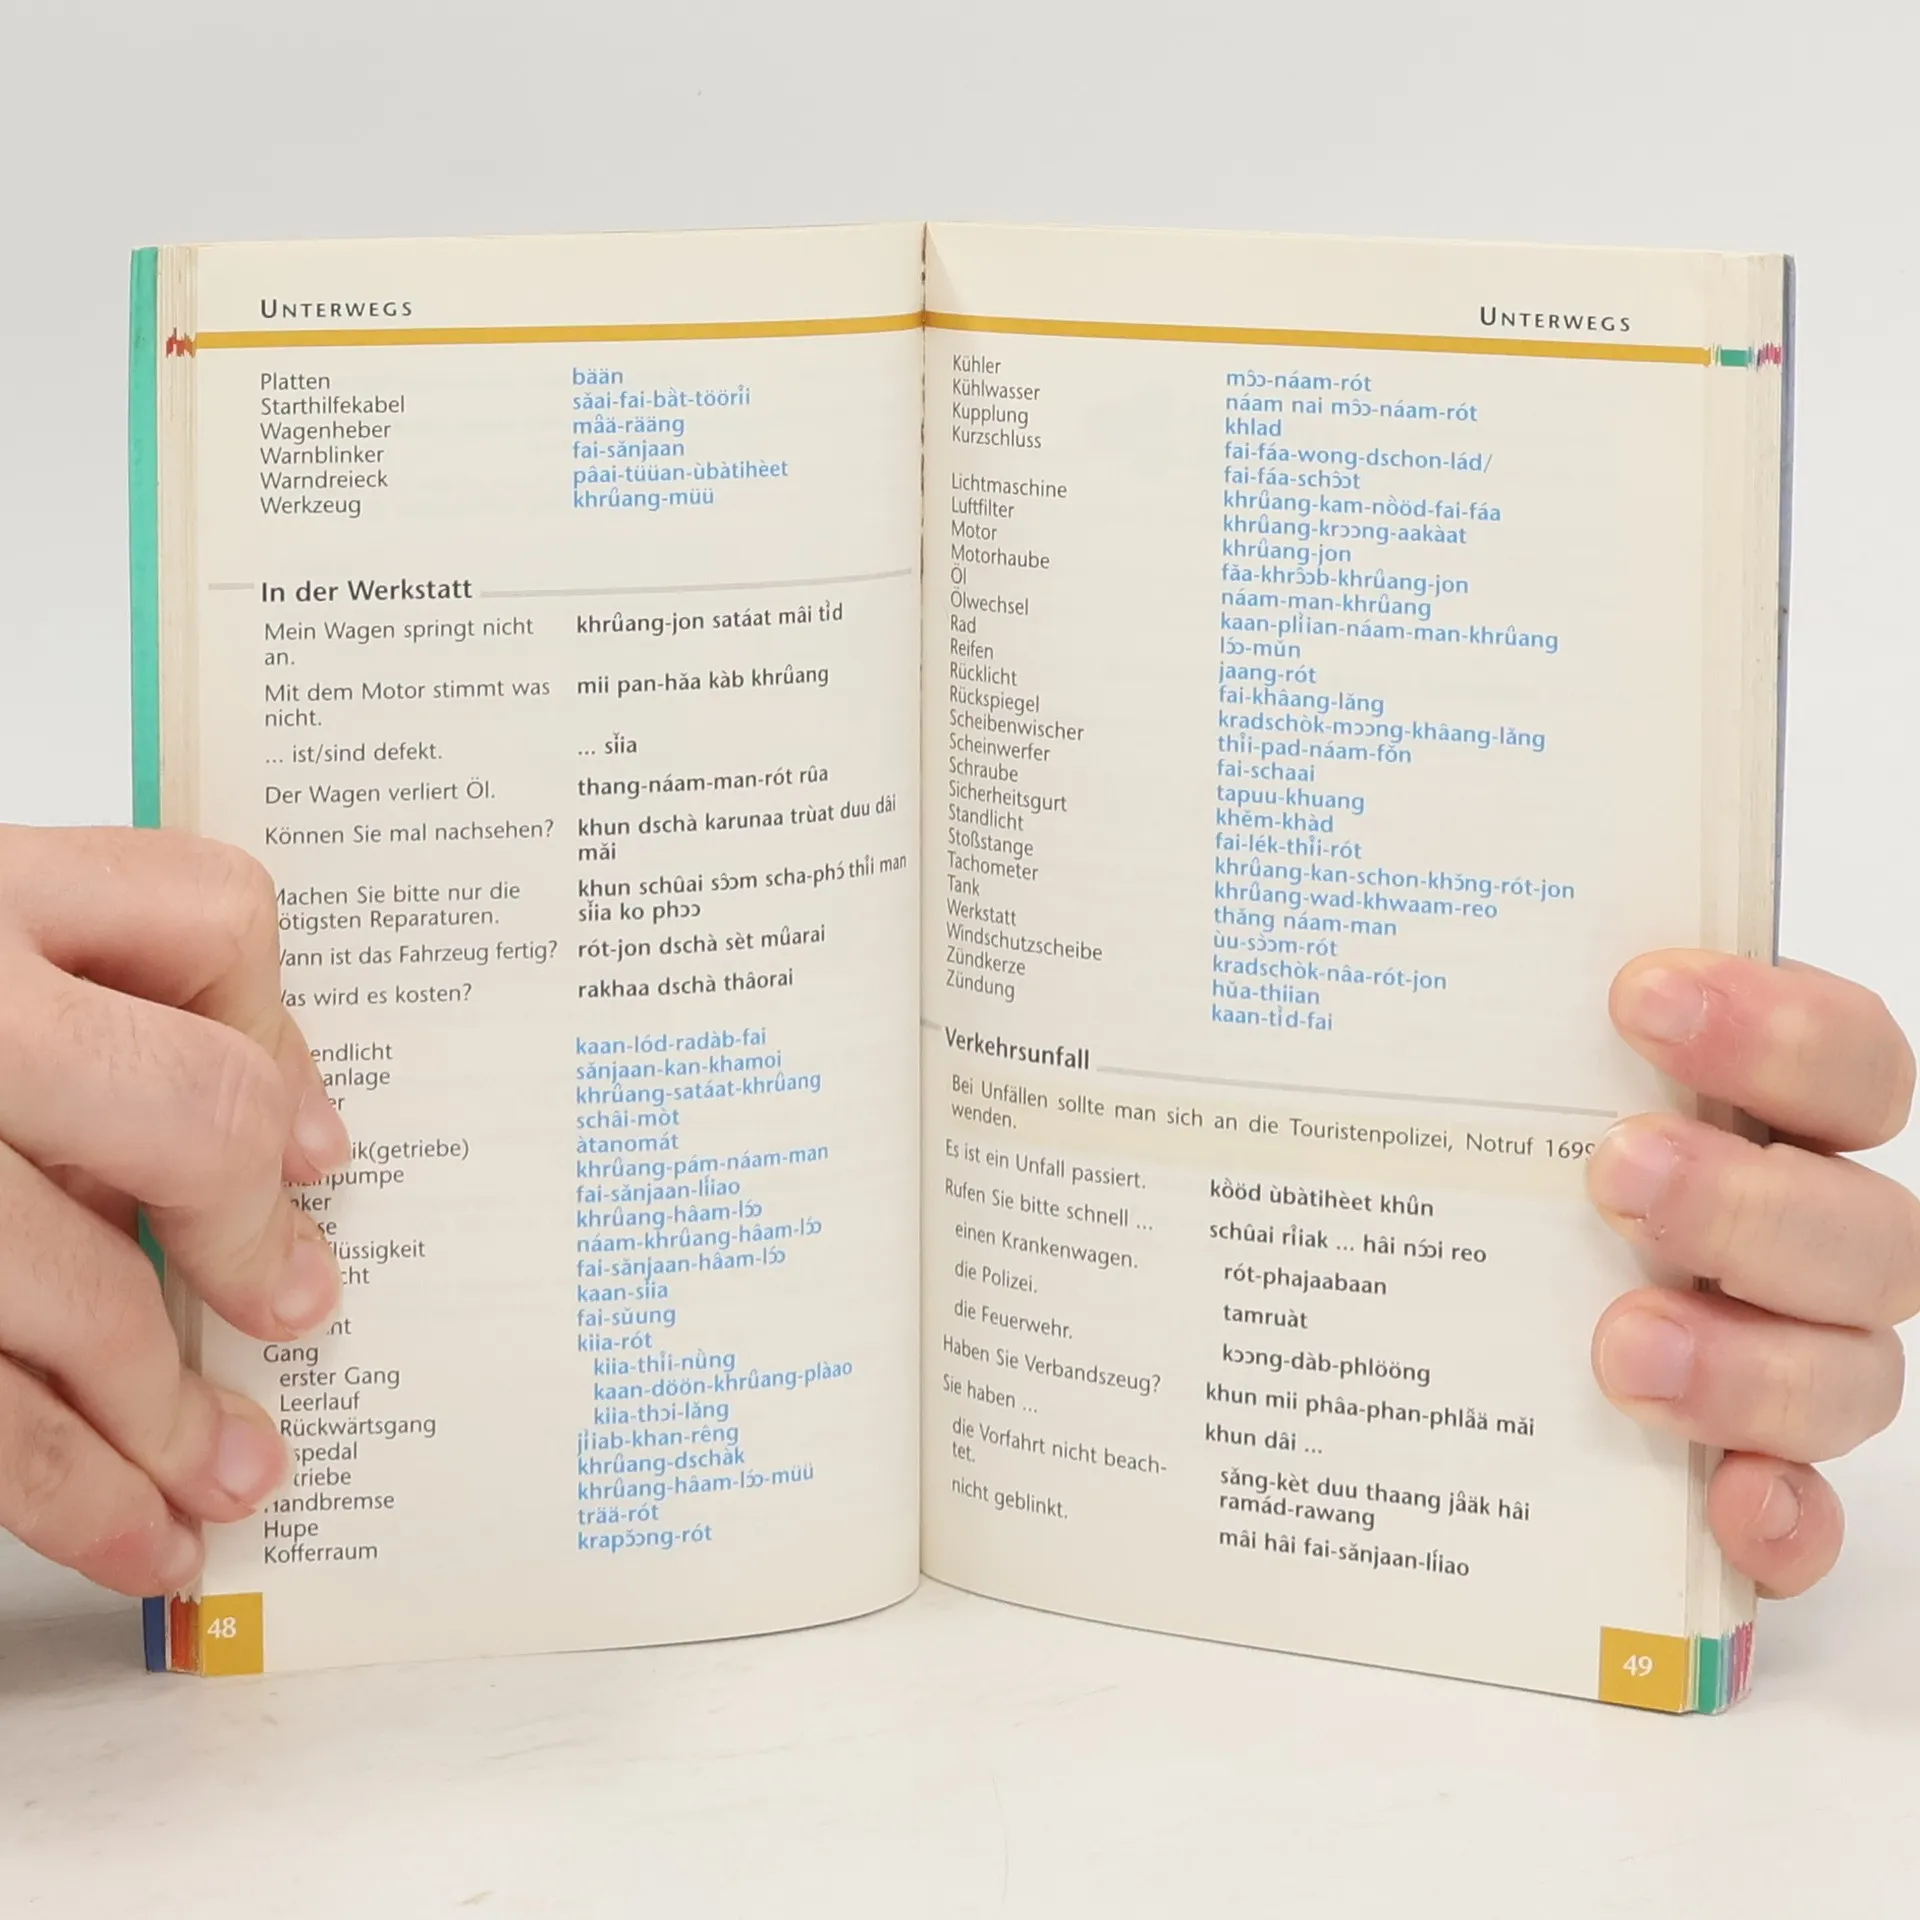 UNTERWEGS
Platten bään
Starthilfekabel săai-fai-bàt-töörîi
Wagenheber mâä-rääng
Warnblinker fai-sănjaan
Warndreieck pâai-tüüan-ùbàtihèet
Werkzeug khrûang-müü
In der Werkstatt
Mein Wagen springt nicht khrûang-jon satáat mâi tìd
an.
Mit dem Motor stimmt was mii pan-hăa kàb khrûang
nicht.
... ist/sind defekt. ... sǐia
Der Wagen verliert Öl. thang-náam-man-rót rûa
Können Sie mal nachsehen? khun dschà karunaa trùat duu dâi
măi
Machen Sie bitte nur die khun schûai sɔ̂ɔm scha-phɔ́ thîi man
ötigsten Reparaturen. sǐia ko phɔɔ
Wann ist das Fahrzeug fertig? rót-jon dschà sèt mûarai
Was wird es kosten? rakhaa dschà thâorai
endlicht kaan-lód-radàb-fai
anlage sănjaan-kan-khamoi
er khrûang-satáat-khrûang
schâi-mòt
ik(getriebe) àtanomát
pumpe khrûang-pám-náam-man
ker fai-sănjaan-líiao
se khrûang-hâam-lɔ́ɔ
lüssigkeit náam-khrûang-hâam-lɔ́ɔ
cht fai-sănjaan-hâam-lɔ́ɔ
kaan-sǐia
nt fai-sŭung
Gang kiia-rót
erster Gang kiia-thîi-nǜng
Leerlauf kaan-döön-khrûang-plàao
Rückwärtsgang kiia-thɔi-lăng
spedal jìiab-khan-rêng
triebe khrûang-dschàk
Handbremse khrûang-hâam-lɔ́ɔ-müü
Hupe trää-rót
Kofferraum krapɔ̌ɔng-rót
48
UNTERWEGS
Kühler mɔ̂ɔ-náam-rót
Kühlwasser náam nai mɔ̂ɔ-náam-rót
Kupplung khlad
Kurzschluss fai-fáa-wong-dschon-lád/
fai-fáa-schɔ̂ɔt
Lichtmaschine khrûang-kam-nö̀öd-fai-fáa
Luftfilter khrûang-krɔɔng-aakàat
Motor khrûang-jon
Motorhaube făa-khrɔ̂ɔb-khrûang-jon
Öl náam-man-khrûang
Ölwechsel kaan-plìian-náam-man-khrûang
Rad lɔ́ɔ-mŭn
Reifen jaang-rót
Rücklicht fai-khâang-lăng
Rückspiegel kradschòk-mɔɔng-khâang-lăng
Scheibenwischer thîi-pad-náam-fŏn
Scheinwerfer fai-schaai
Schraube tapuu-khuang
Sicherheitsgurt khěm-khàd
Standlicht fai-lék-thîi-rót
Stoßstange khrûang-kan-schon-khɔ̌ng-rót-jon
Tachometer khrûang-wad-khwaam-reo
Tank thăng náam-man
Werkstatt ùu-sɔ̀ɔm-rót
Windschutzscheibe kradschòk-nâa-rót-jon
Zündkerze hŭa-thiian
Zündung kaan-tìd-fai
Verkehrsunfall
Bei Unfällen sollte man sich an die Touristenpolizei, Notruf 1699
wenden.
Es ist ein Unfall passiert. kö̀öd ùbàtihèet khûn
Rufen Sie bitte schnell ... schûai rîiak ... hâi nɔ́ɔi reo
einen Krankenwagen. rót-phajaabaan
die Polizei. tamruàt
die Feuerwehr. kɔɔng-dàb-phlööng
Haben Sie Verbandszeug? khun mii phâa-phan-phlä̌ä măi
Sie haben ... khun dâi ...
die Vorfahrt nicht beach- săng-kèt duu thaang jâäk hâi
tet. ramád-rawang
nicht geblinkt. mâi hâi fai-sănjaan-líiao
49